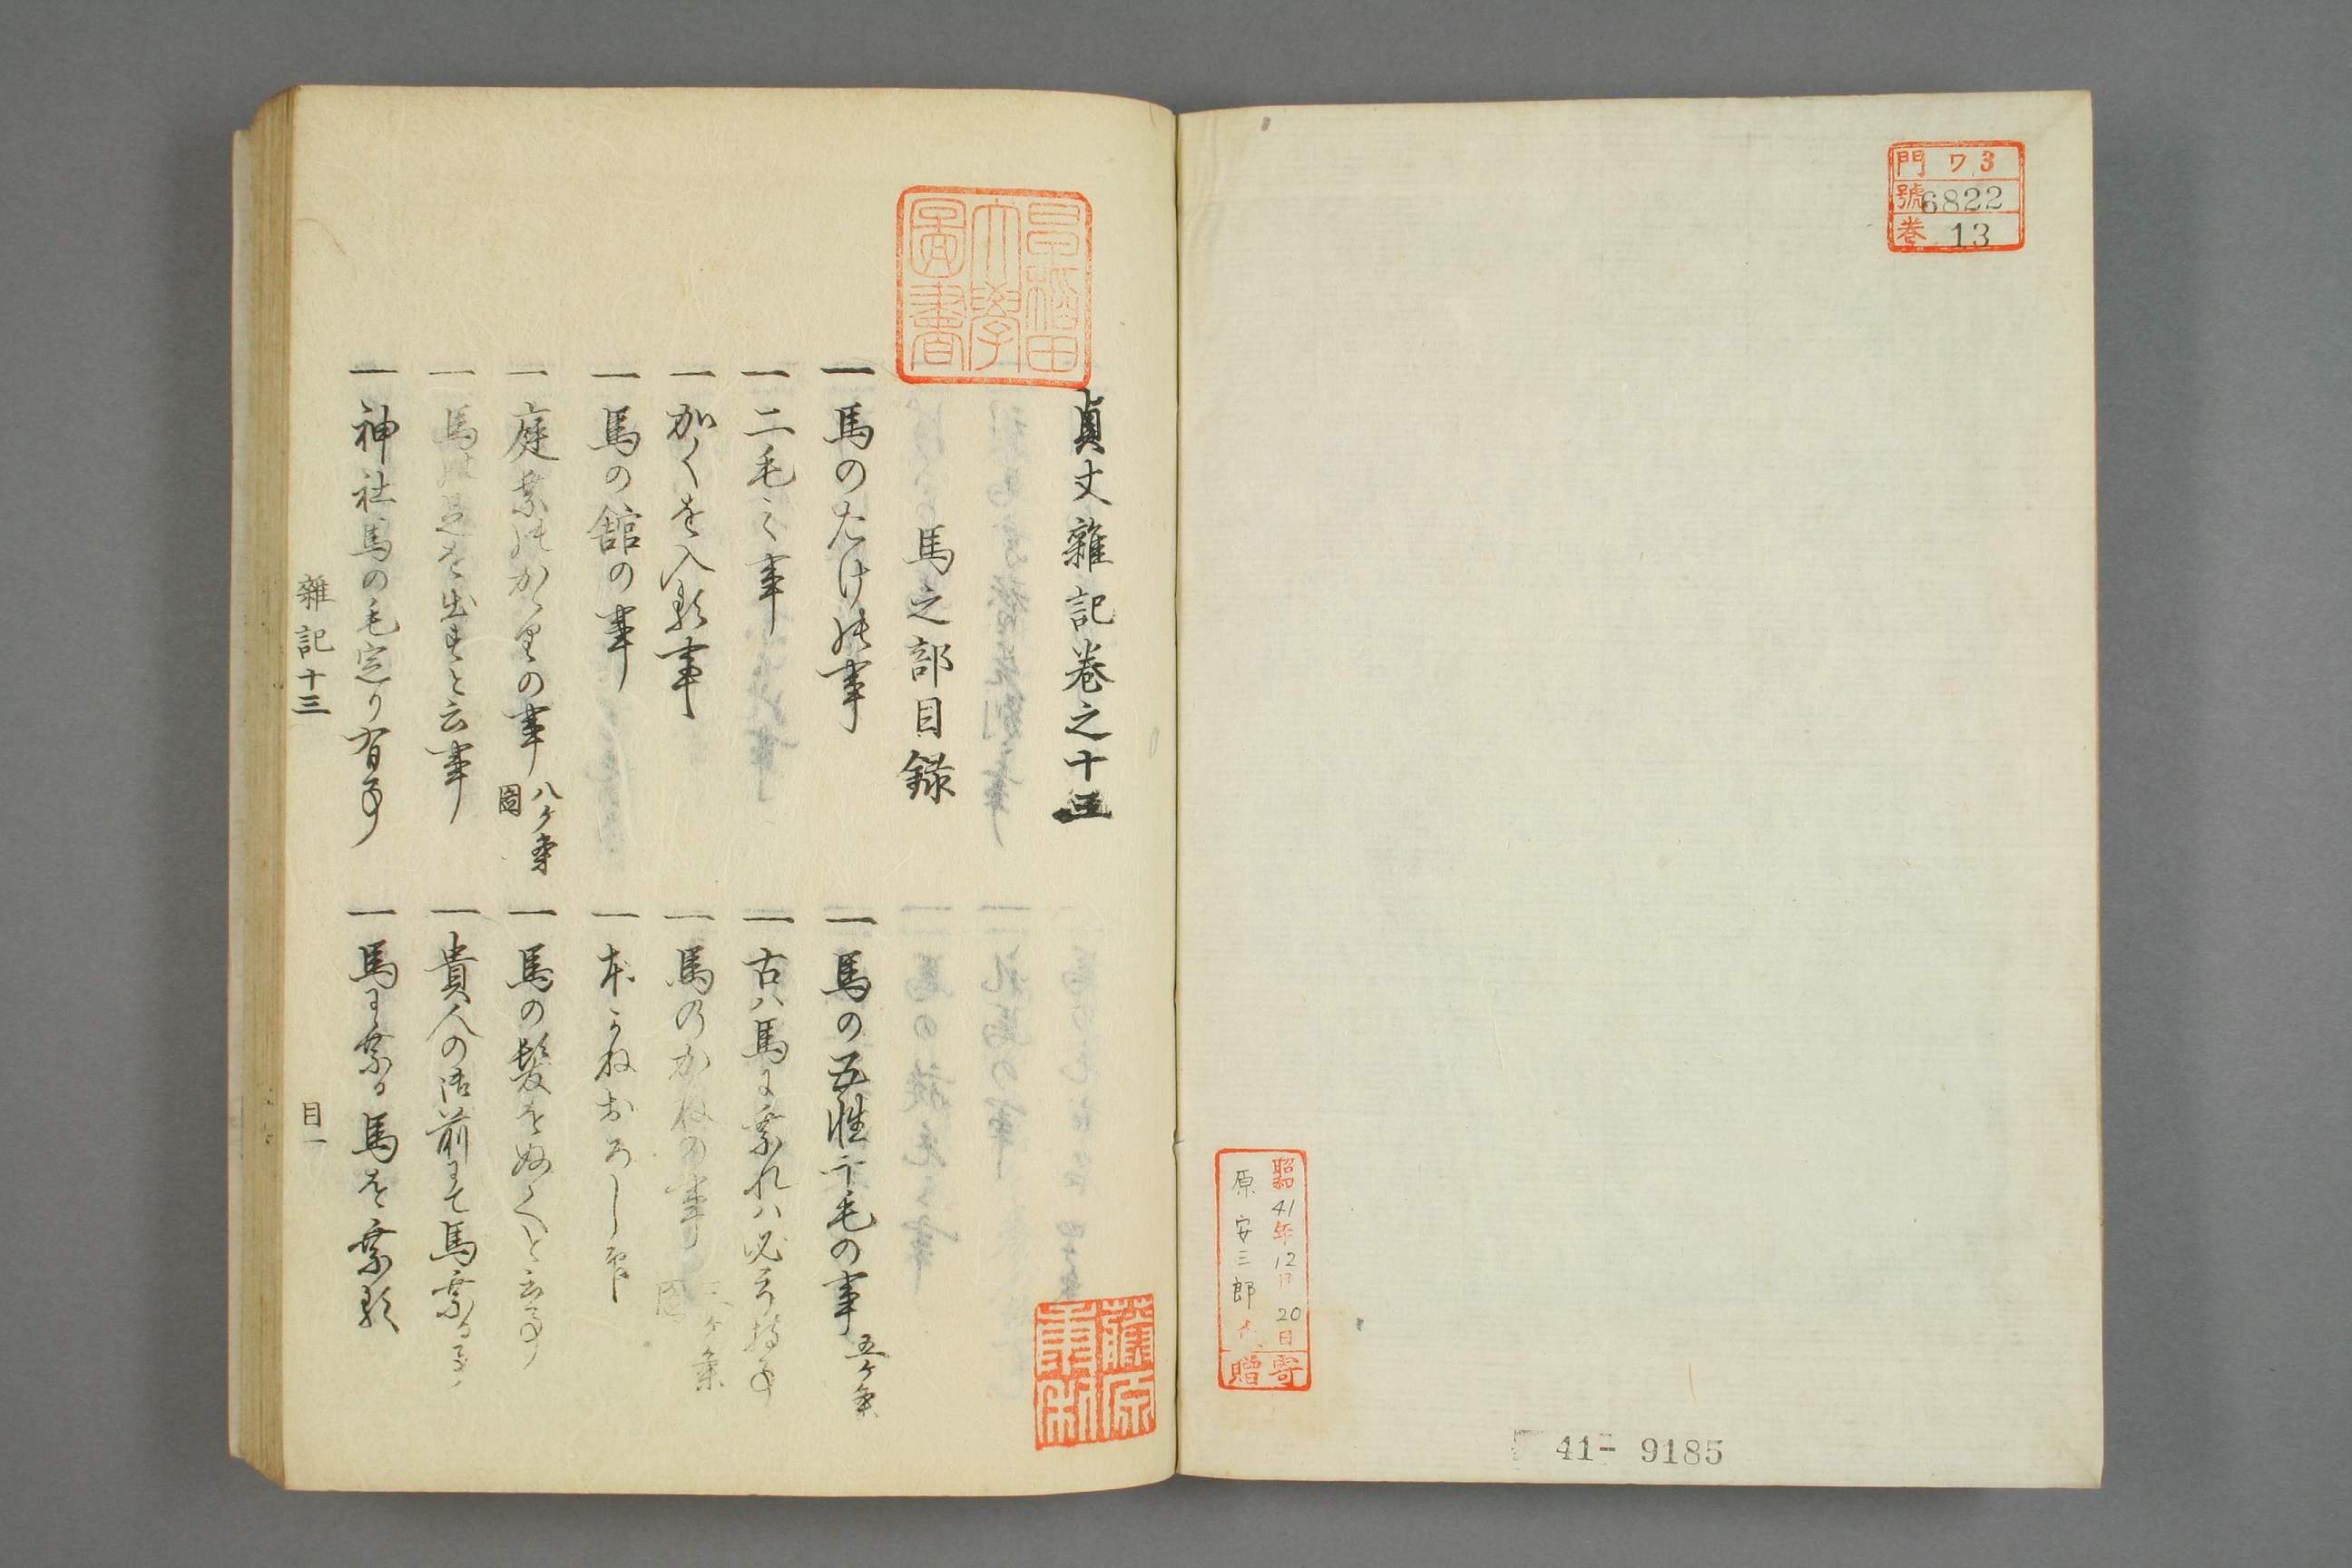 門 ワ 3
號 6822
巻 13
昭和41年12月20日
原安三郎氏
寄贈
41-9185
早稲田大學圖書
貞丈雜記巻之十三
馬之部目録
一 馬のたけの事
一 馬の五性十毛の事 五ケ条
一 二毛之事
一 古ハ馬に乗れハ必弓持事
一 かくを入る事
一 馬のかねの事 三ケ条 図
一 馬の舘の事
一 本かねおろし事
一 庭乗のかゝりの事 八ケ条 図
一 馬の髪をぬくと云事
一 馬の足を出すと云事
一 貴人の御前にて馬乗る事
一 神社馬の毛定り有事
一 馬に乗る馬を乗る
雜記十三
目一